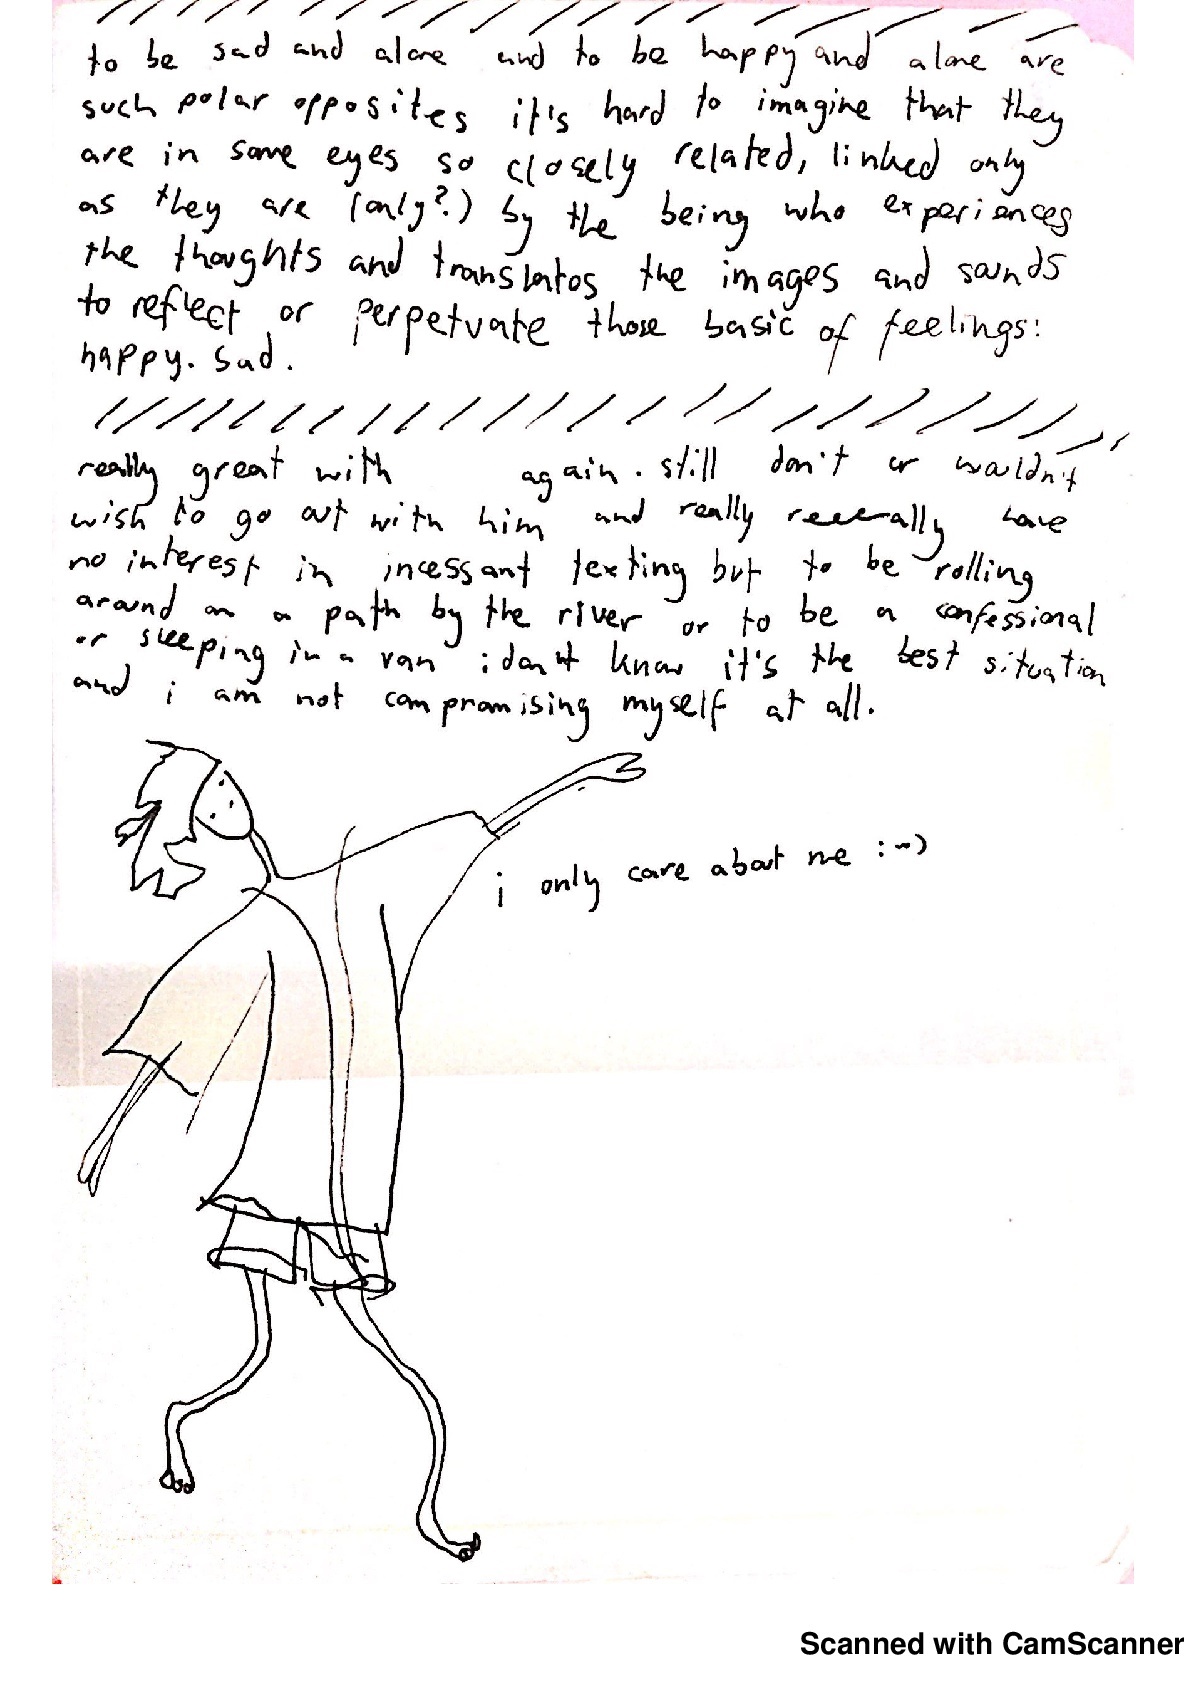 to be sad and alone and to be happy and alone are
such polar opposites it's hard to imagine that they
are in some eyes so closely related, linked only
as they are (only?) by the being who experiences
the thoughts and translates the images and sounds
to reflect or perpetuate those basic of feelings:
happy. sad.
really great with again. still don't or wouldn't
wish to go out with him and really really have
no interest in incessant texting but to be rolling
around on a path by the river or to be a confessional
or sleeping in a van i don't know it's the best situation
and i am not compromising myself at all.
i only care about me :~)
Scanned with CamScanner